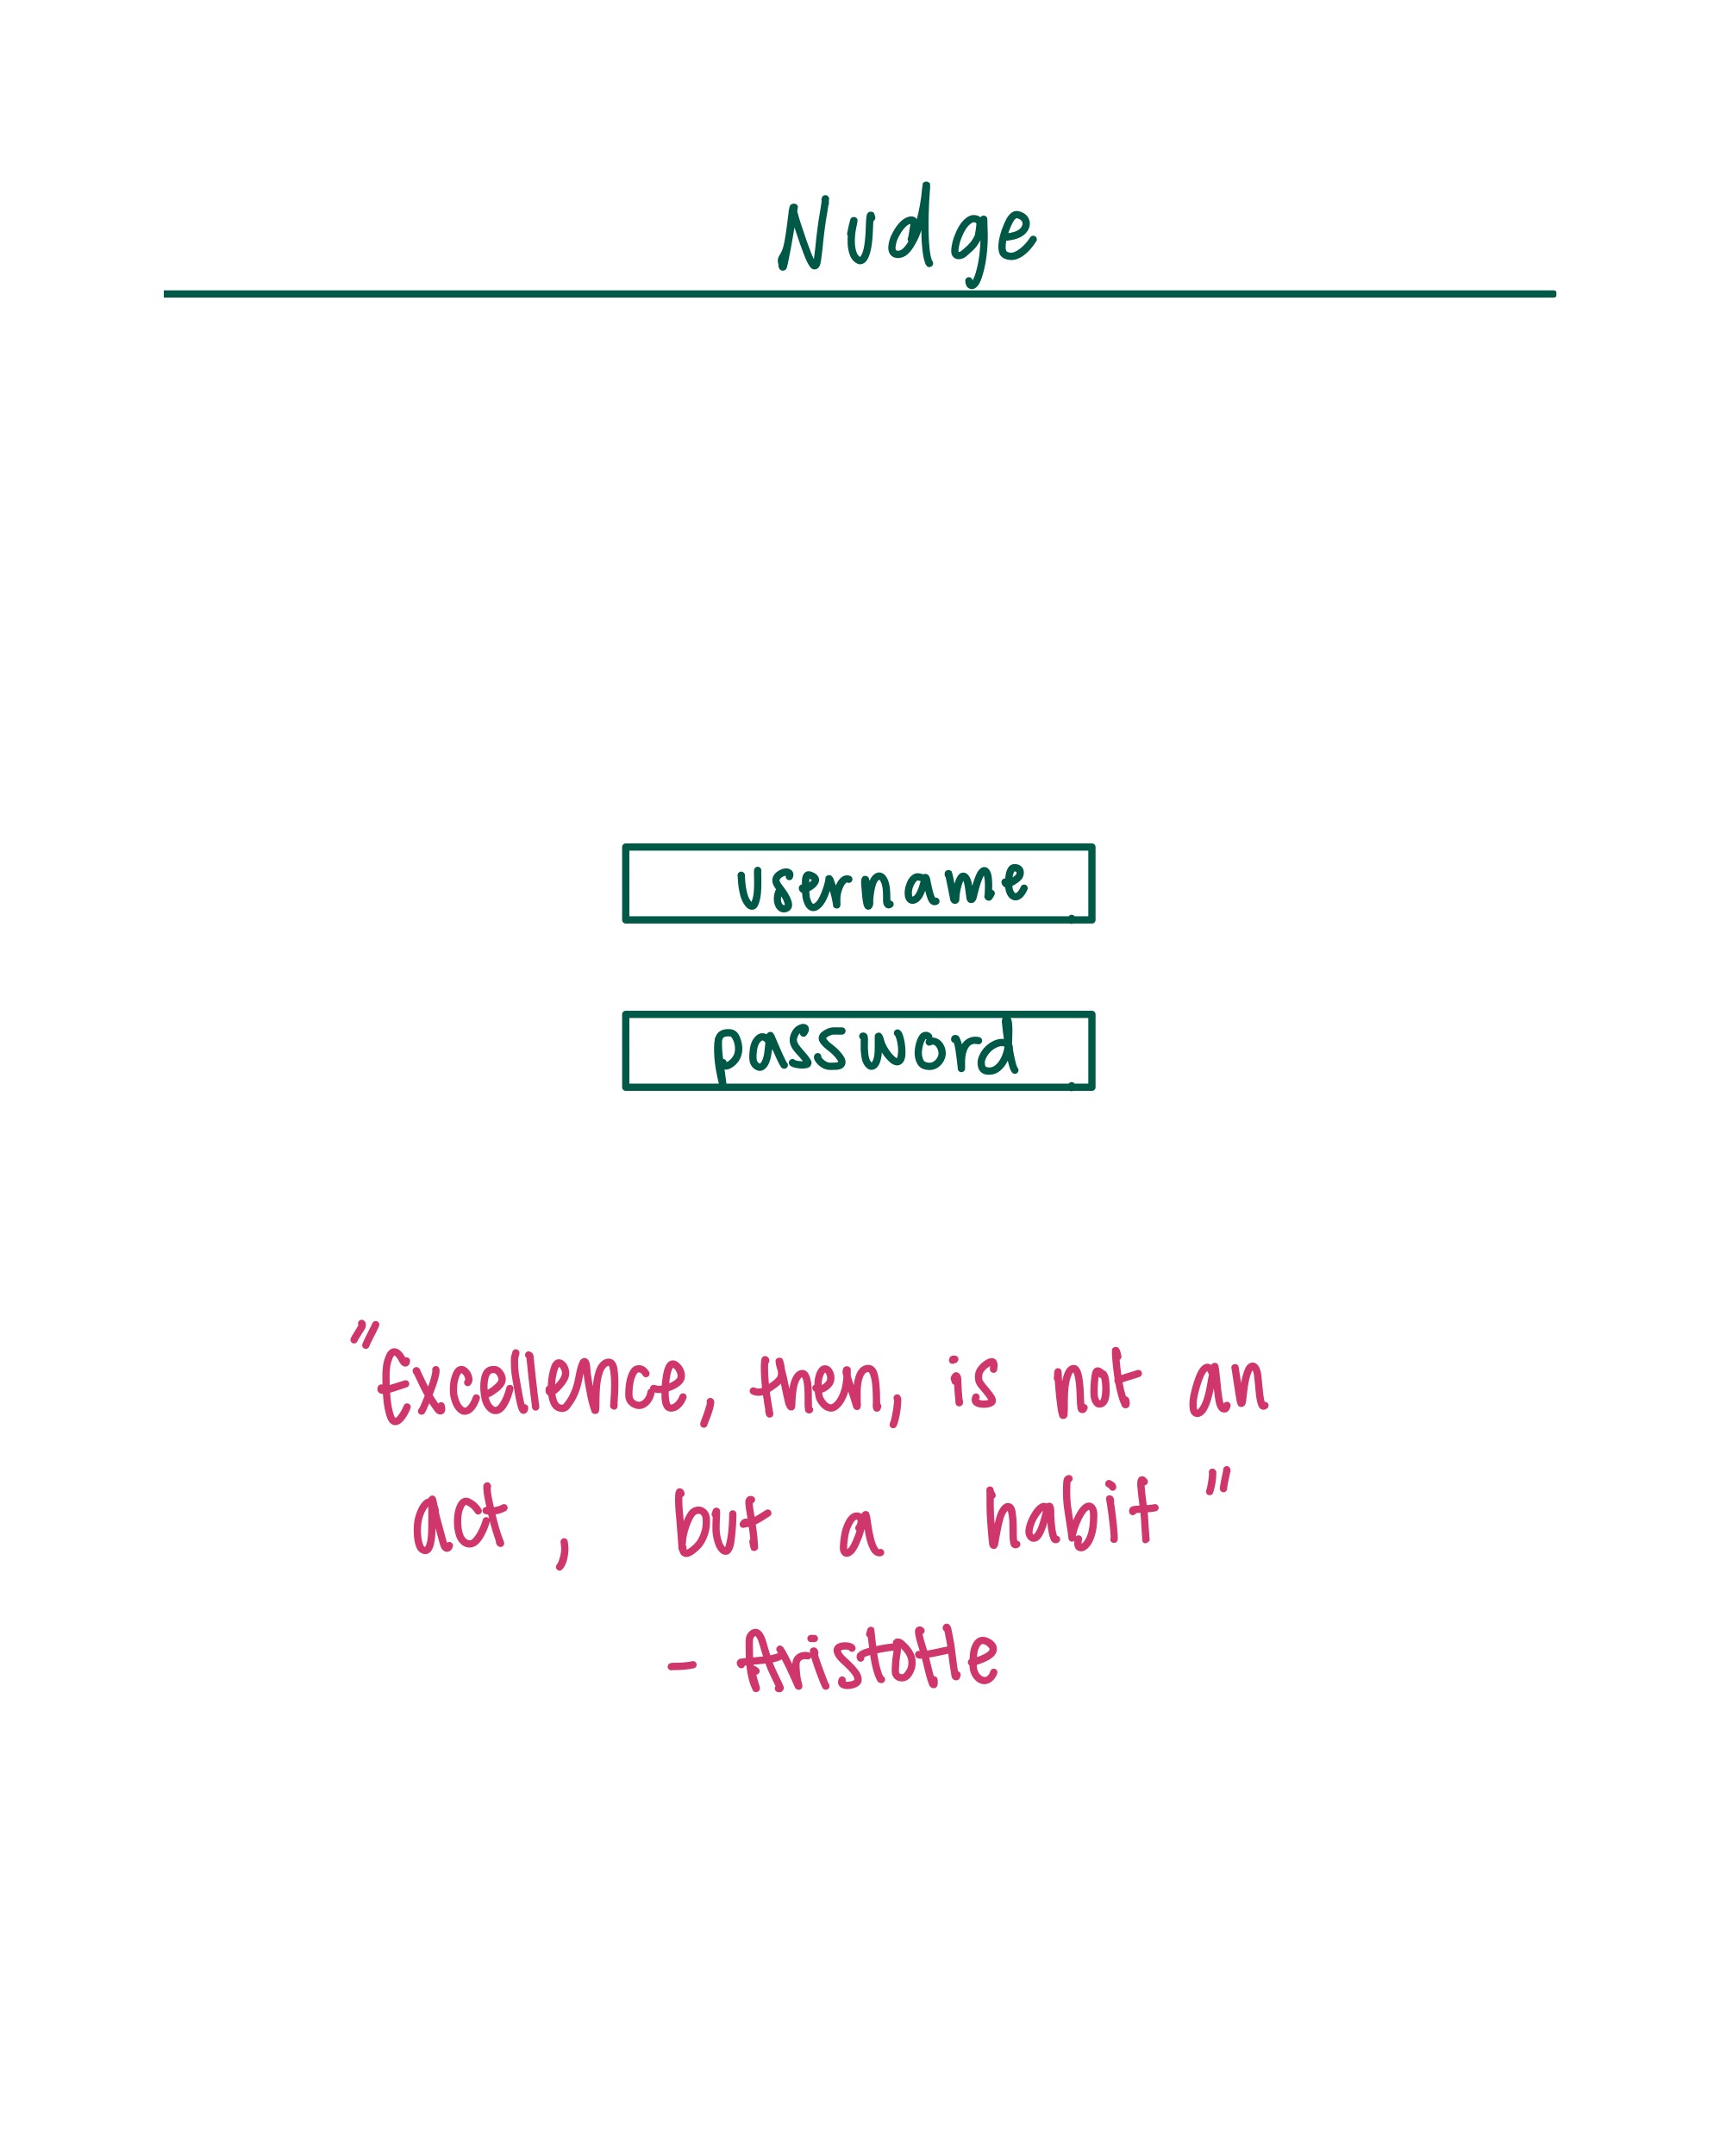 Nudge
username
password
"Excellence, then, is not an
act, but a habit"
- Aristotle